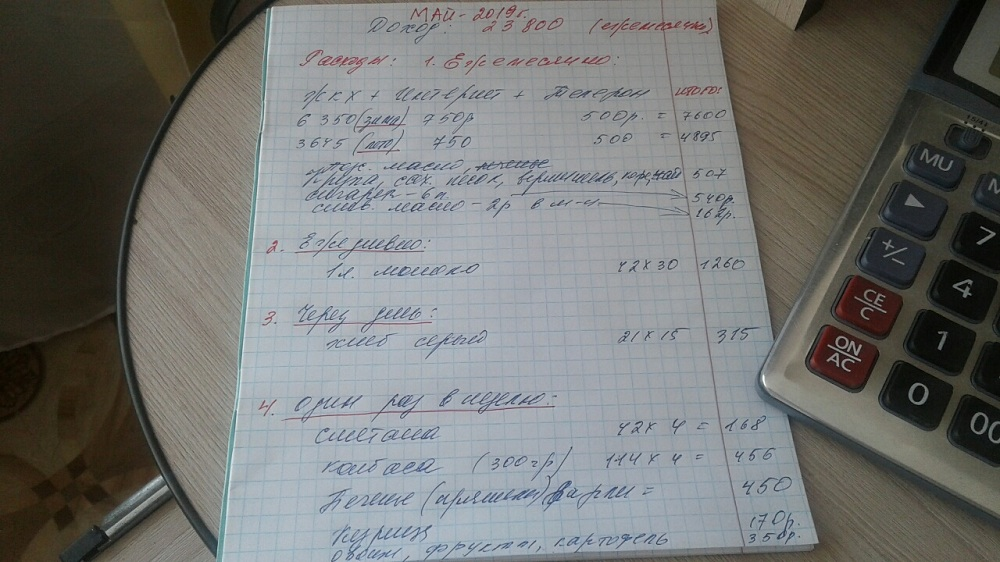 МАЙ - 2019г.
Доход: 23 800 (ежемесячно)
Расходы: 1. Ежемесячно:
ЖКХ + Интернет + Телефон ИТОГО:
6 350 (зима) 750р 500р. = 7600
3645 (лето) 750 500 = 4895
масло,
Крупа, сах. песок, вермишель, кофе, чай 507
сигарет - 6п 540р.
слив. масло - 2р в м-ц 162р.
2. Ежедневно:
1л. молоко 42 х 30 1260
3. Через день:
хлеб серый 21 х 15 315
4. Один раз в неделю:
сметана 42 х 4 = 168
колбаса (300гр) 114 х 4 = 456
Печенье (пряники) = 450
Курица 170р.
овощи, фрукты, картофель 350р.
MU
+/-
7
CE/C
4
ON/AC
1
0
00